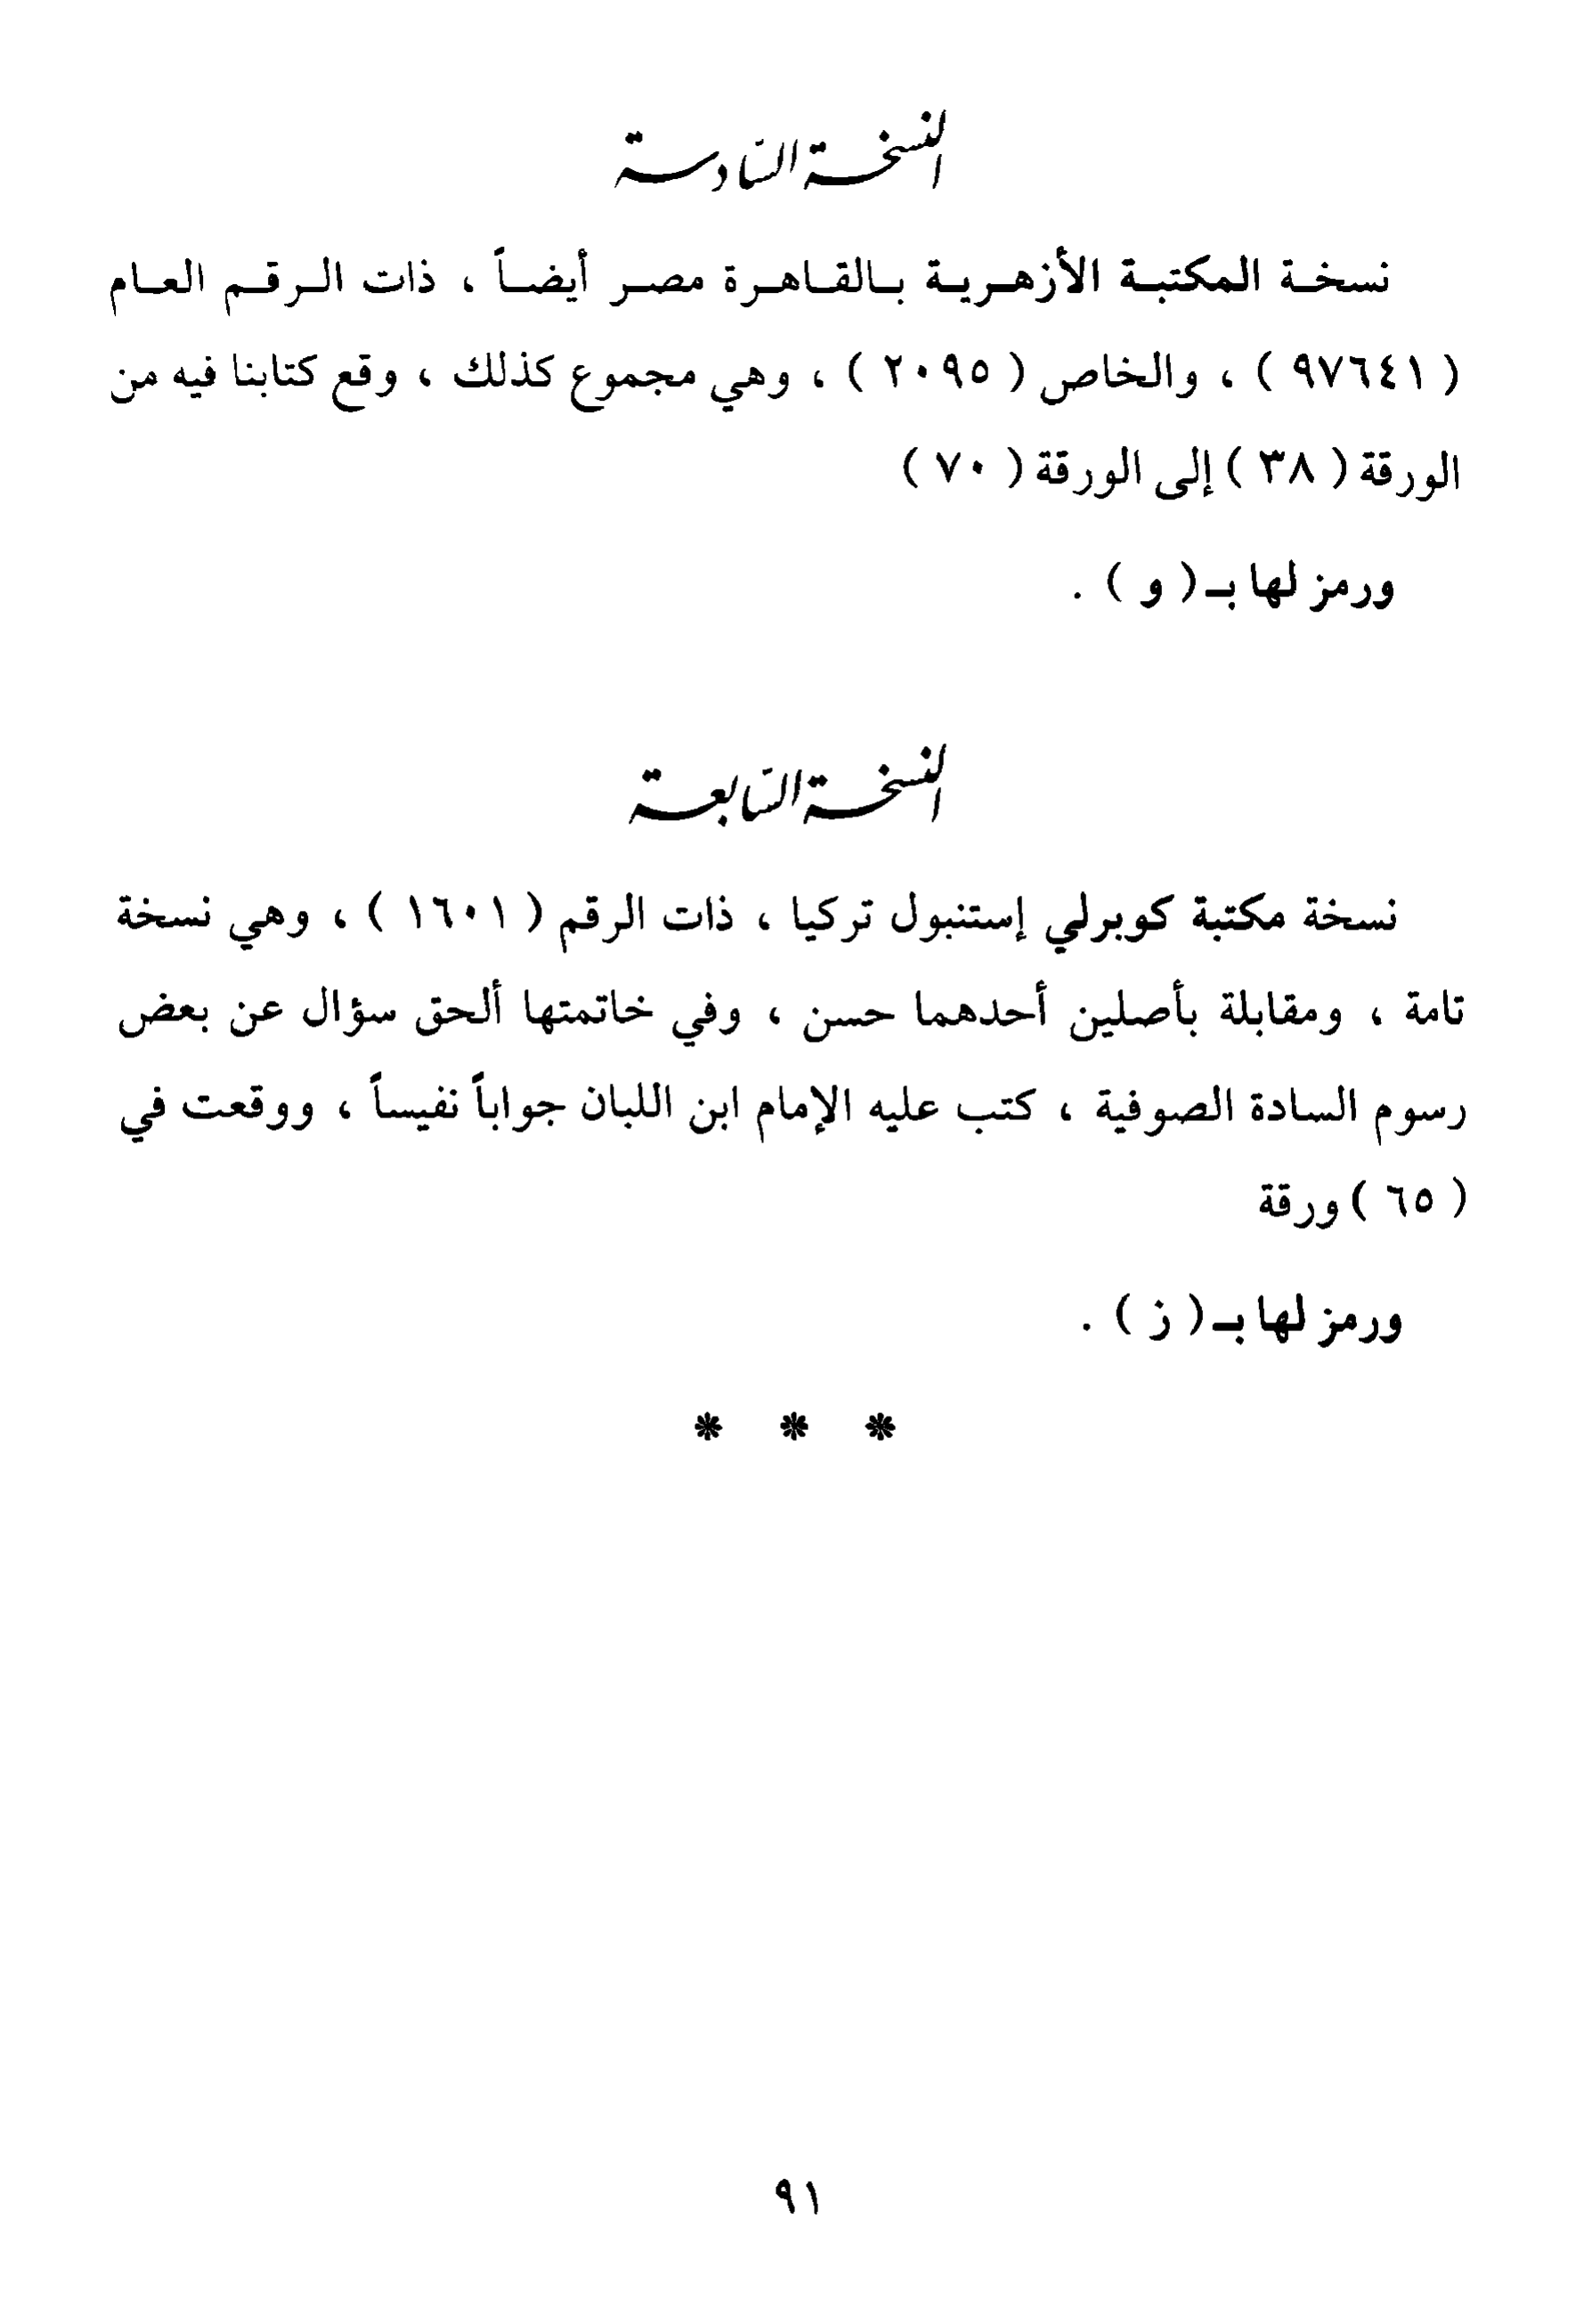 النسخة السّادسة
نسخة المكتبة الأزهرية بالقاهرة مصر أيضاً ، ذات الرقم العام
( ٩٧٦٤١ ) ، والخاص ( ٢٠٩٥ ) ، وهي مجموع كذلك ، وقع كتابنا فيه من
الورقة ( ٣٨ ) إلى الورقة ( ٧٠ )
ورمز لها بـ ( و ) .
النسخة السّابعة
نسخة مكتبة كوبرلي إستنبول تركيا ، ذات الرقم ( ١٦٠١ ) ، وهي نسخة
تامة ، ومقابلة بأصلين أحدهما حسن ، وفي خاتمتها ألحق سؤال عن بعض
رسوم السادة الصوفية ، كتب عليه الإمام ابن اللبان جواباً نفيساً ، ووقعت في
( ٦٥ ) ورقة
ورمز لها بـ ( ز ) .
* * *
٩١